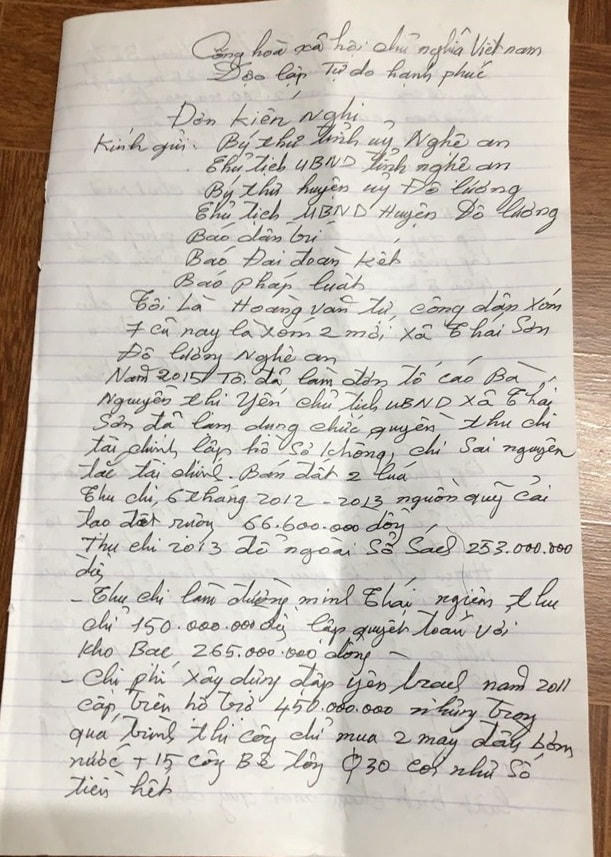 Cộng hoà xã hội chủ nghĩa Việt nam
Độc lập Tự do hạnh phúc
Đơn kiến Nghị
Kính gửi: Bý thư tỉnh uỷ Nghệ an
Chủ tịch UBND tỉnh nghệ an
Bý thư huyện uỷ Đô lương
Chủ tịch UBND Huyện Đô lương
Báo dân trí
Báo Đại đoàn kết
Báo pháp luật
Tôi Là Hoàng văn tư, công dân xóm
7 cũ nay là xóm 2 mới xã Thái Sơn
Đô lương Nghệ an
Năm 2015 Tôi đã làm đơn tố cáo Bà
Nguyễn thị Yến chủ tịch UBND xã Thái
Sơn đã lạm dụng chức quyền thu chi
tài chính lập hồ sơ khống, chi Sai nguyên
tắc tài chính. Bán đất 2 lúa
Thu chi, 6 tháng 2012 - 2013 nguồn quỹ cải
tạo đất ruộng 66.600.000 đồng
Thu chi 2013 để ngoài Sổ Sách 253.000.000
đg
- Thu chi làm đường minh Thái nghiêm thu
chỉ 150.000.000đg lập quyết toán với
kho Bạc 265.000.000 đồng -
- Chi phí xây dựng đập yên trạch năm 2011
cấp trên hỗ trợ 450.000.000 nhưng trong
quá trình thi công chỉ mua 2 máy bơm
nước + 15 cống Bê tông Φ30 coi như Số
tiền hết